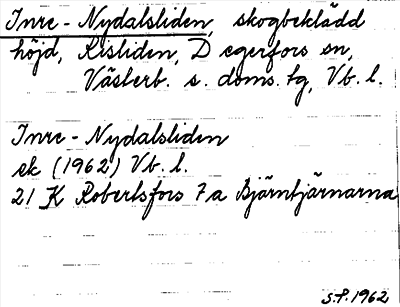 Inre-Nydalsliden, skogbeklädd
höjd, Risliden, Degerfors sn,
Västerb. s. doms. tg, Vb. l.
Inre-Nydalsliden
ek (1962) Vb. l.
21 K Robertsfors 7a Björntjärnarna
S.P. 1962